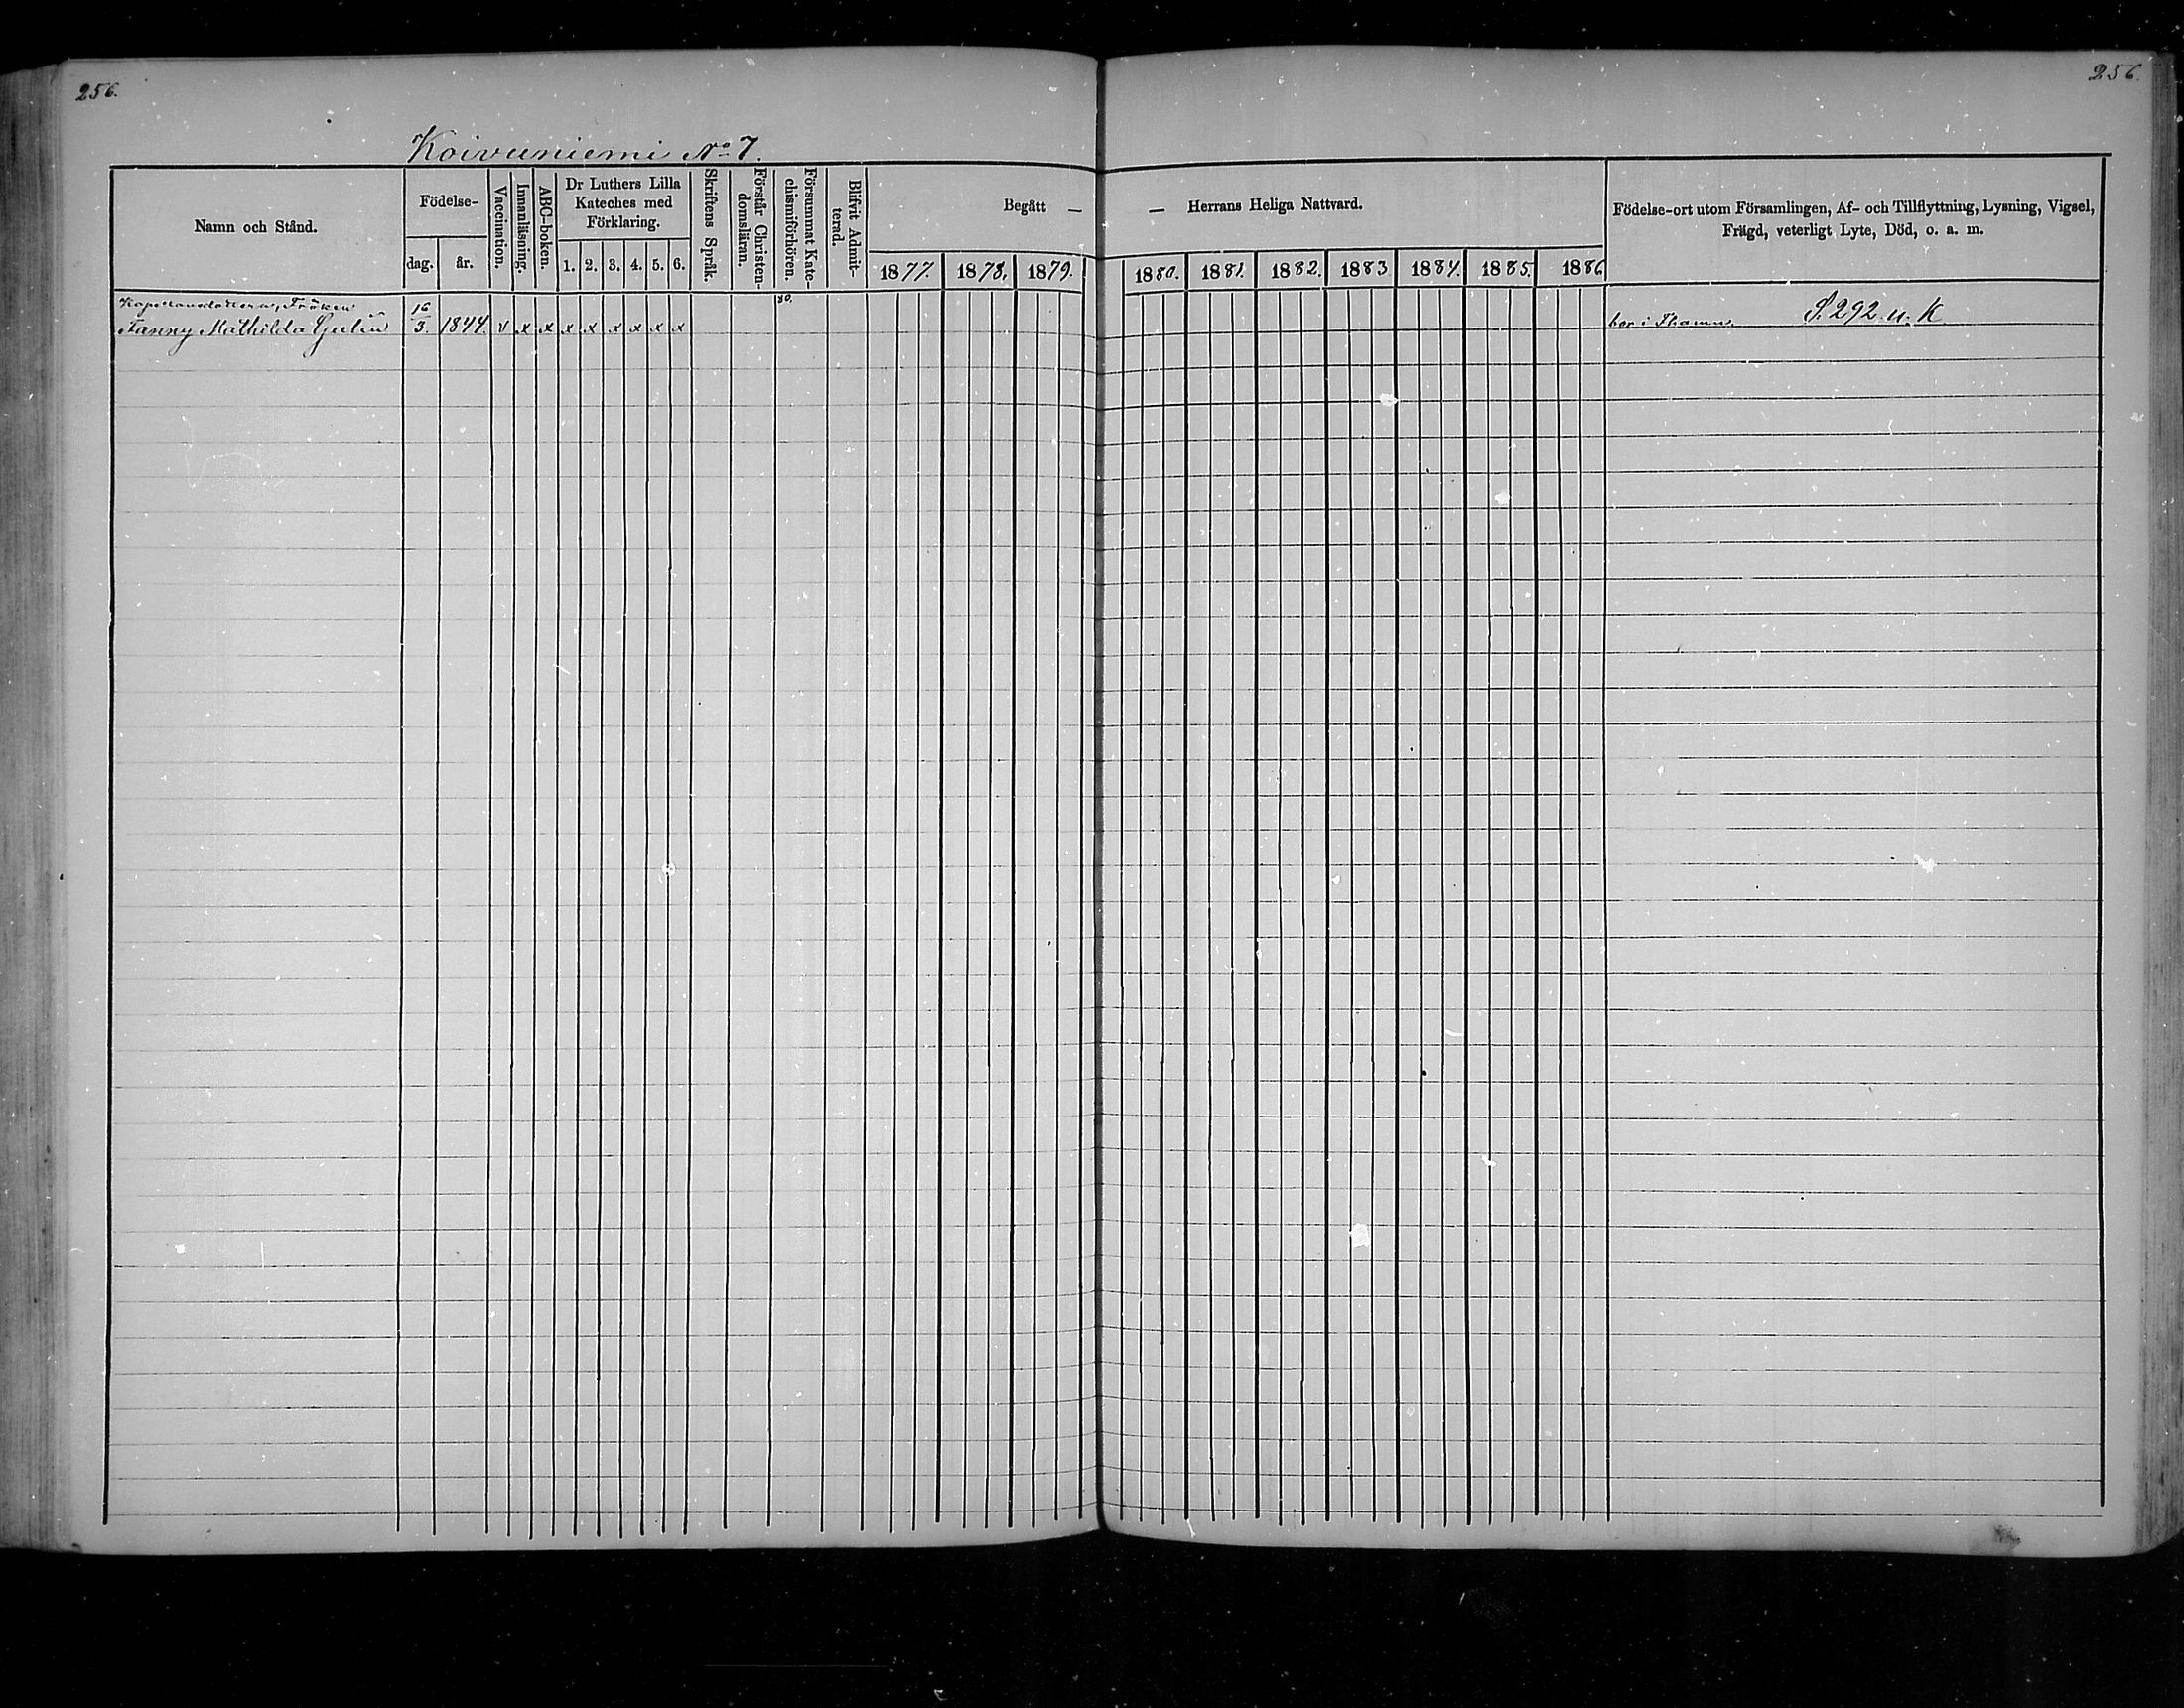 256.
256
Koivuniemi No 7.
Namn och Stånd.
Födelse-
dag.
år.
Vaccination.
Innanläsning.
ABC-boken.
Dr Luthers Lilla
Kateches med
Förklaring.
1. 2. 3. 4. 5. 6.
Skriftens Språk.
Förstår Christen-
domsläran.
Försummat Kate-
chismiförhören.
Blifvit Admit-
terad.
Begått —
— Herrans Heliga Nattvard.
1877. 1878. 1879. 1880. 1881. 1882. 1883 1884. 1885. 1886
Födelse-ort utom Församlingen, Af- och Tillflyttning, Lysning, Vigsel,
Frägd, veterligt Lyte, Död, o. a. m.
Fröken
80.
Fanny Mathilda 16/3. 1844. v x x x x x x x x
bor i S. 292 u. K